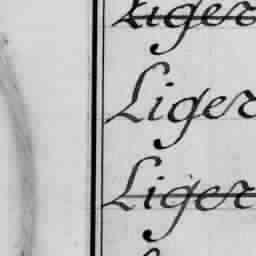 Liger
Liger
Liger